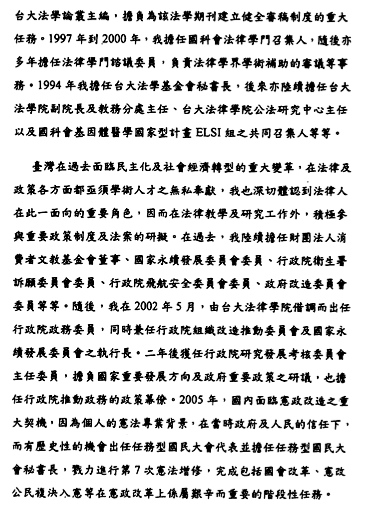 台大法學論叢主編，擔負為該法學期刊建立健全審稿制度的重大
任務。1997 年到 2000 年，我擔任國科會法律學門召集人，隨後亦
多年擔任法律學門諮議委員，負責法律學界學術補助的審議等事
務。1994 年我擔任台大法學基金會秘書長，後來亦陸續擔任台大
法學院副院長及教務分處主任、台大法律學院公法研究中心主任
以及國科會基因體醫學國家型計畫 ELSI 組之共同召集人等等。
臺灣在過去面臨民主化及社會經濟轉型的重大變革，在法律及
政策各方面都亟須學術人才之無私奉獻，我也深切體認到法律人
在此一面向的重要角色，因而在法律教學及研究工作外，積極參
與重要政策制度及法案的研擬。在過去，我陸續擔任財團法人消
費者文教基金會董事、國家永續發展委員會委員、行政院衛生署
訴願委員會委員、行政院飛航安全委員會委員、政府改造委員會
委員等等。隨後，我在 2002 年 5 月，由台大法律學院借調而出任
行政院政務委員，同時兼任行政院組織改造推動委員會及國家永
續發展委員會之執行長。二年後獲任行政院研究發展考核委員會
主任委員，擔負國家重要發展方向及政府重要政策之研議，也擔
任行政院推動政務的政策幕僚。2005 年，國內面臨憲政改造之重
大契機，因為個人的憲法專業背景，在當時政府及人民的信任下，
而有歷史性的機會出任任務型國民大會代表並擔任任務型國民大
會秘書長，戮力進行第 7 次憲法增修，完成包括國會改革、憲改
公民複決入憲等在憲政改革上係屬艱辛而重要的階段性任務。